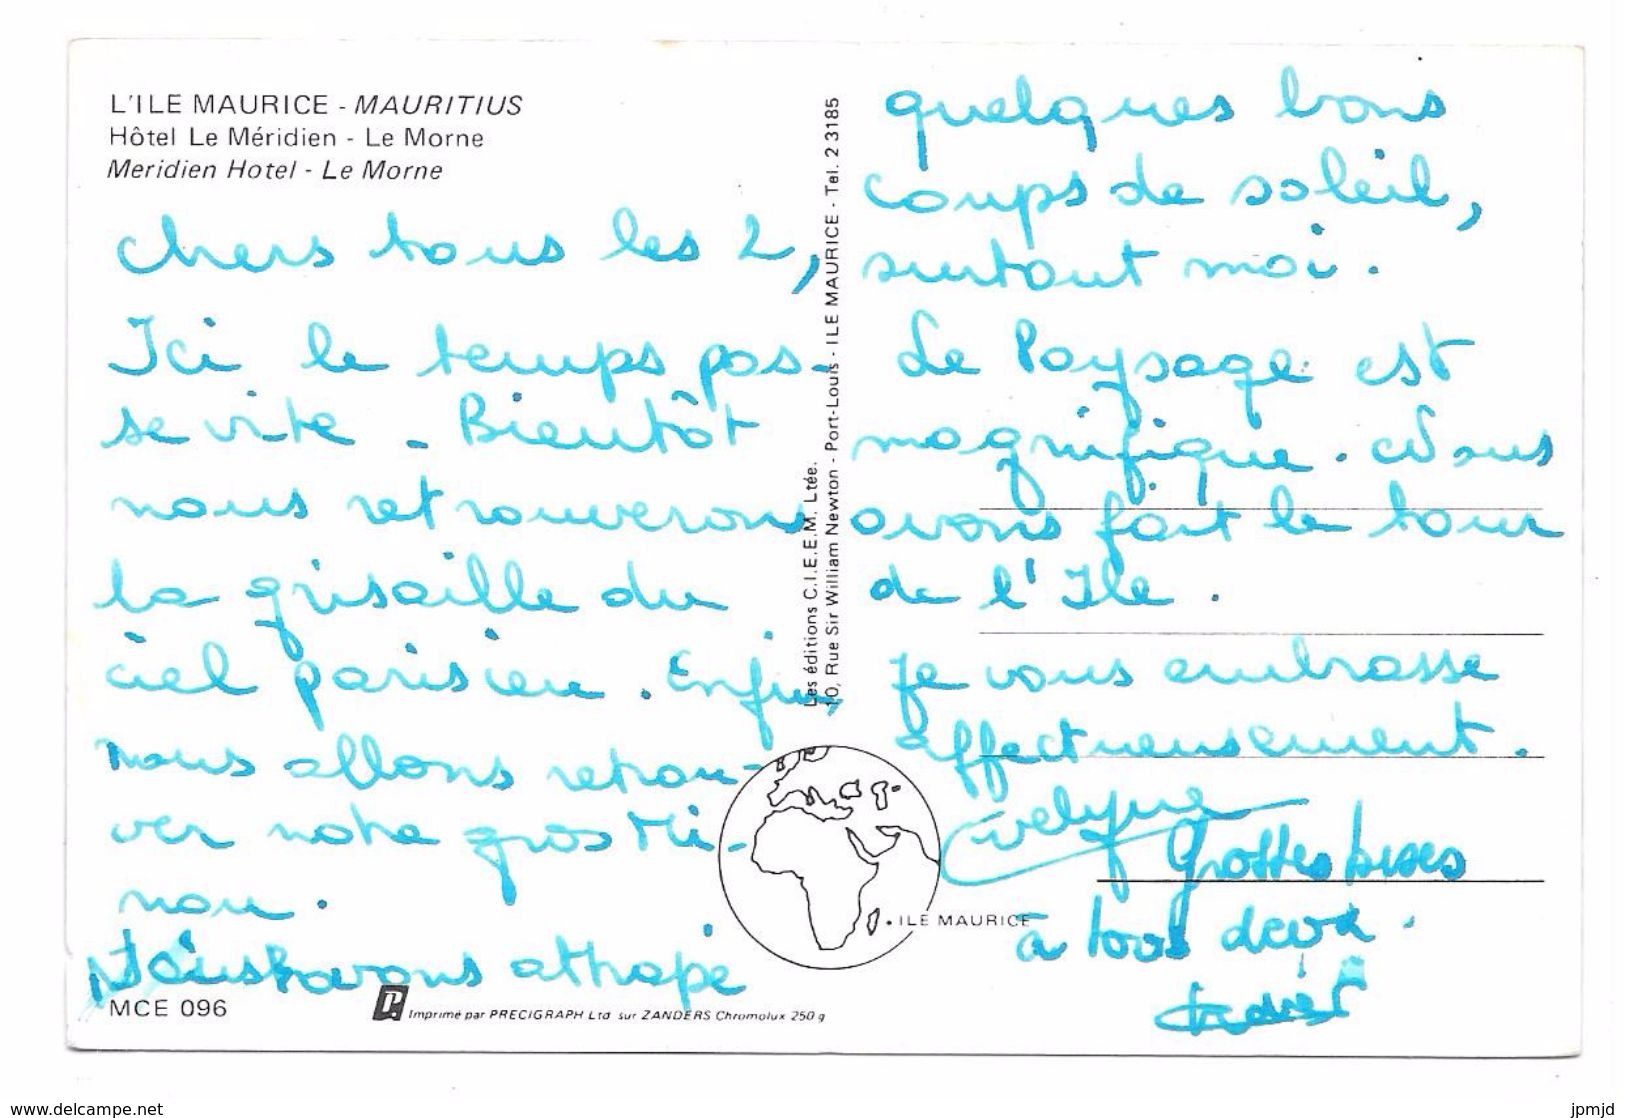 L'ILE MAURICE - MAURITIUS
Hôtel Le Méridien - Le Morne
Meridien Hotel - Le Morne
Chers tous les 2,
Ici le temps pas-
se vite - Bientôt
nous retrouverons
la grisaille du
ciel parisien. Enfin,
nous allons retrou-
ver notre gros Mi-
nou.
Nous avons attrapé
MCE 096
Imprimé par PRECIGRAPH Ltd sur ZANDERS Chromolux 250 g
Les éditions C.I.E.E.M. Ltée.
10, Rue Sir William Newton - Port-Louis - ILE MAURICE - Tel. 2 3185
quelques bons
coups de soleil,
surtout moi.
Le Paysage est
magnifique. Nous
avons fait le tour
de l'Ile.
Je vous embrasse
affectueusement.
Evelyne
Grosses bises
à tous deux.
ILE MAURICE
www.delcampe.net
jpmjd